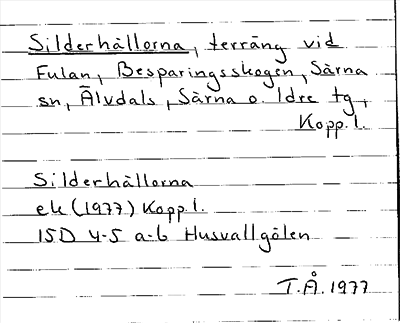 Silderhällorna, terräng vid
Fulan, Besparingsskogen, Särna
sn, Älvdals, Särna o. Idre tg,
Kopp. l.
Silderhällorna
ek (1977) Kopp. l.
15D 4-5 a-b Husvallgölen
T.Å. 1977